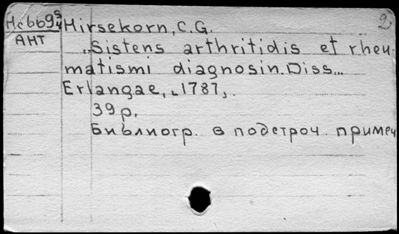 Hirsekorn, C.G. 2
АНТ
„Sistens arthritidis et rheu-
matismi diagnosin. Diss...
Erlangae, 1787,.
39 p.
Библиогр. в подстроч. примеч